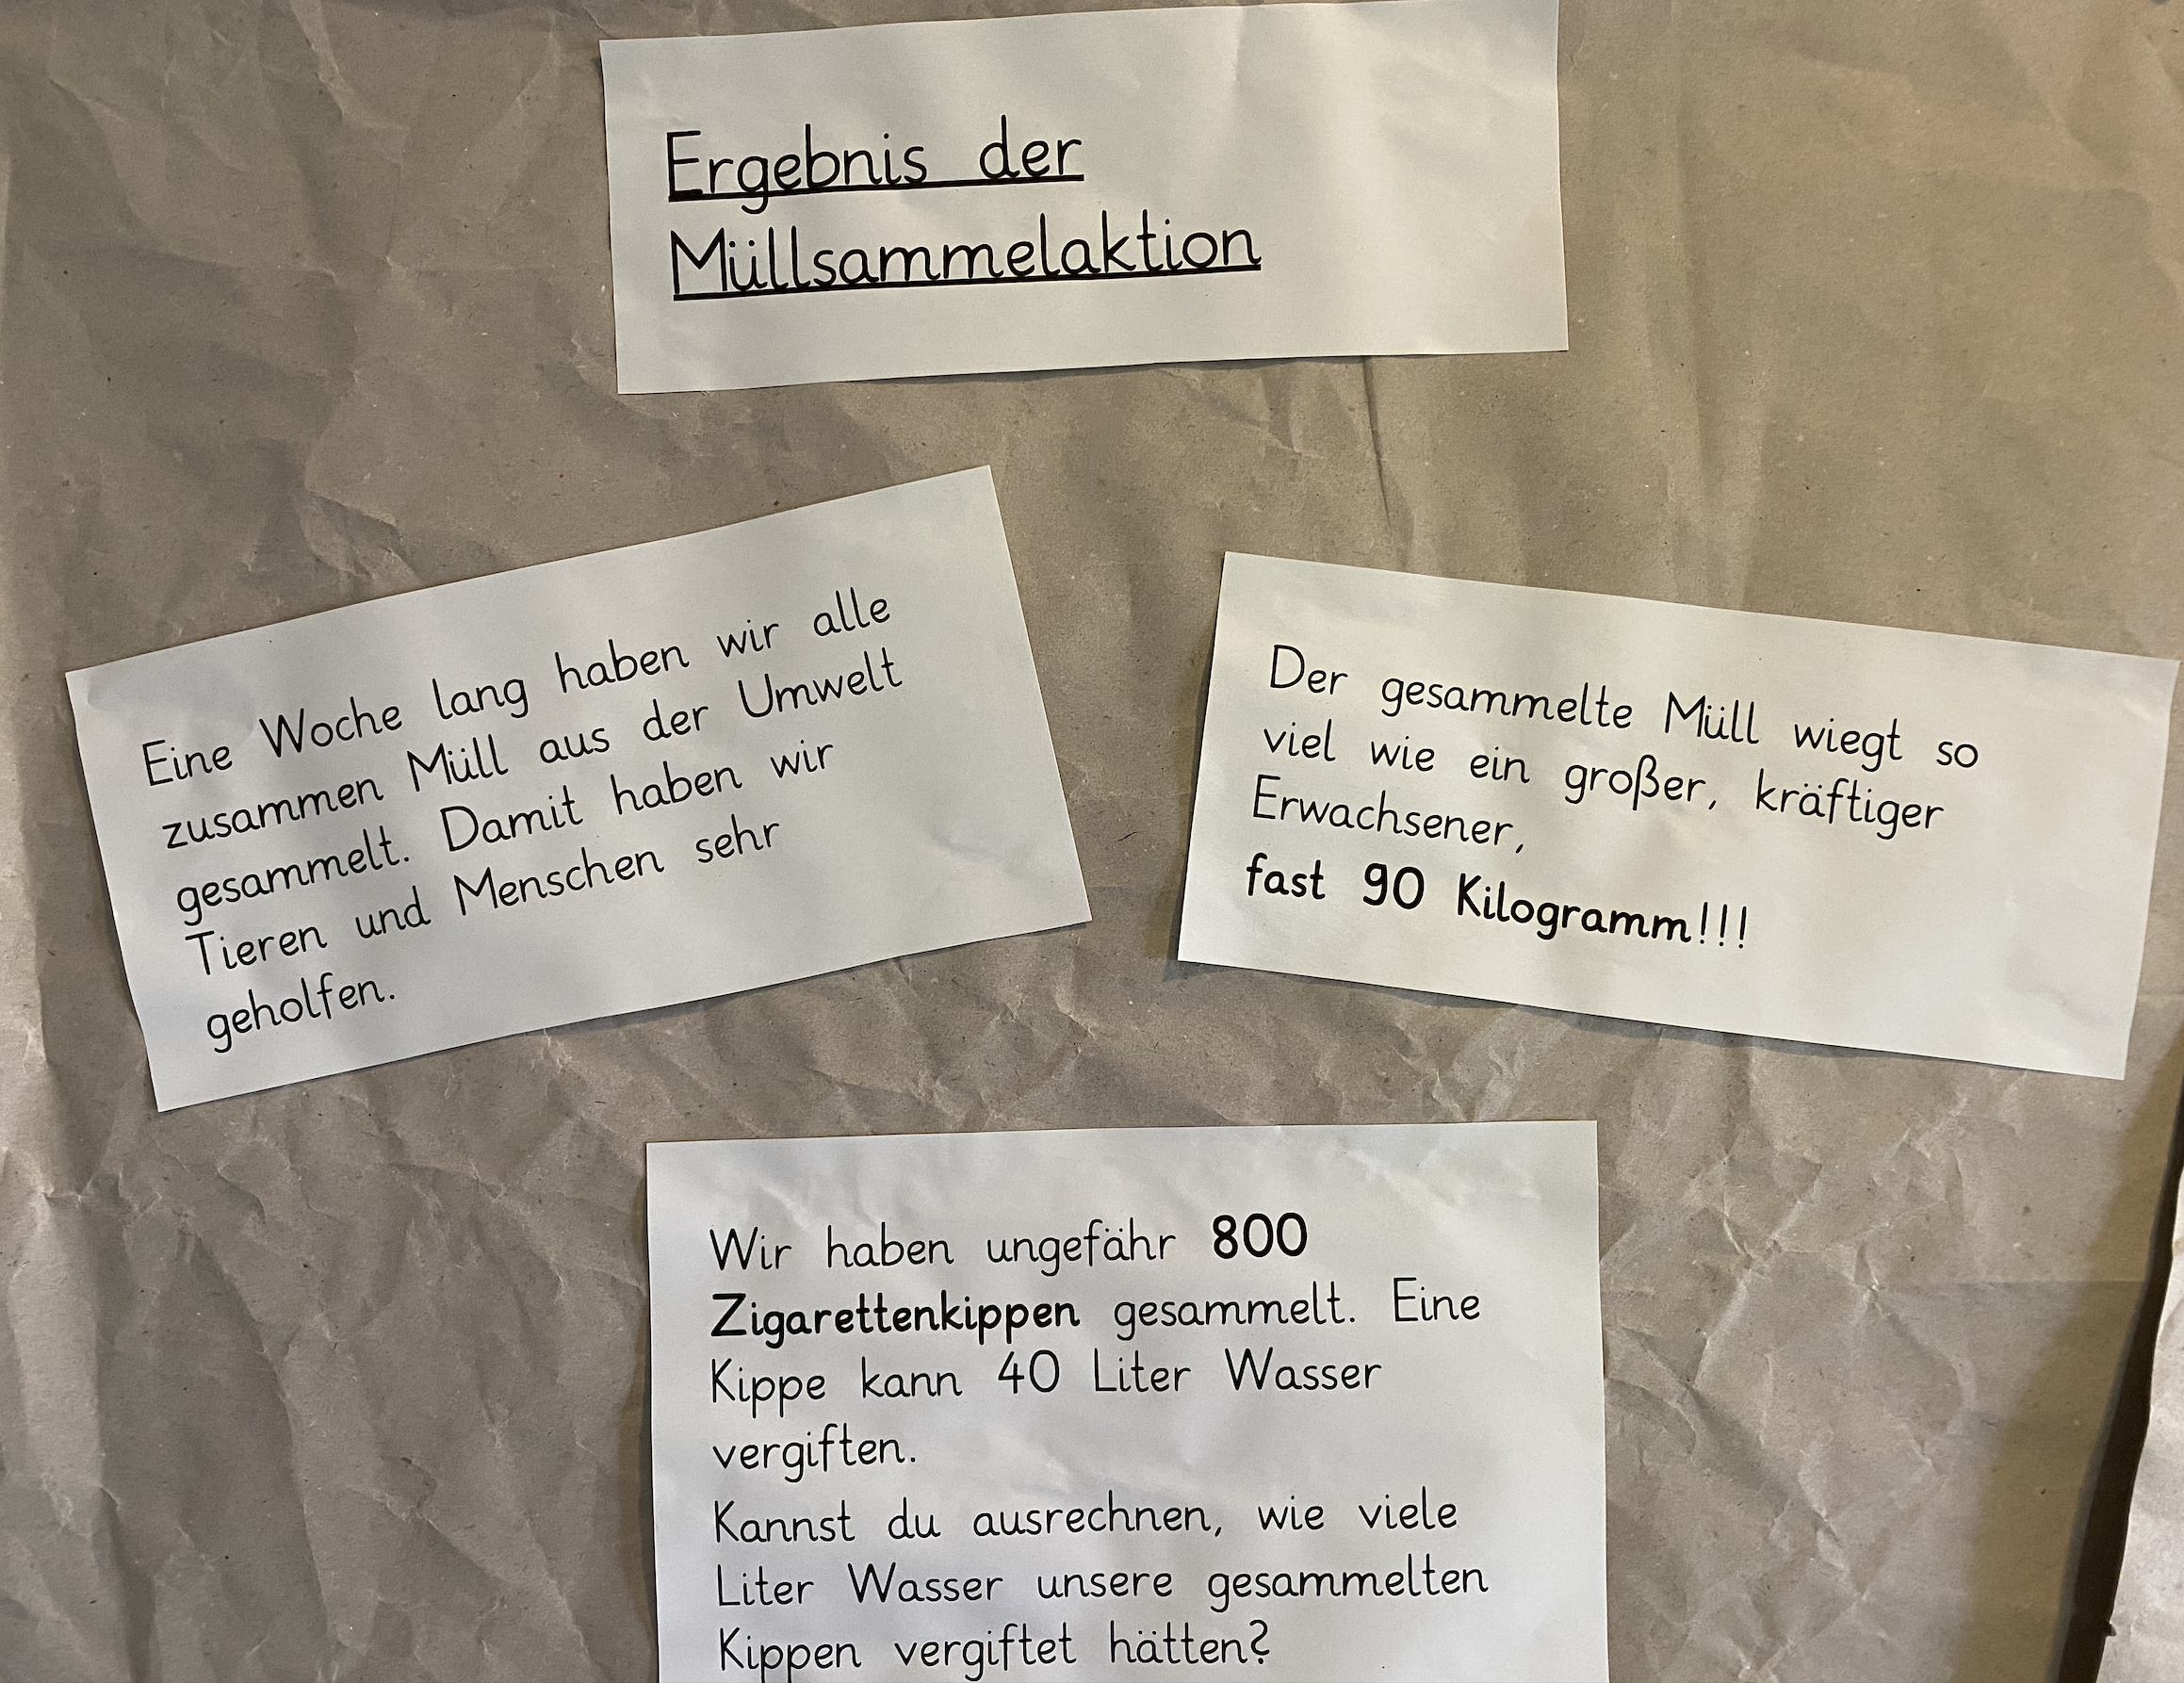 Ergebnis der
Müllsammelaktion
Eine Woche lang haben wir alle
zusammen Müll aus der Umwelt
gesammelt. Damit haben wir
Tieren und Menschen sehr
geholfen.
Der gesammelte Müll wiegt so
viel wie ein großer, kräftiger
Erwachsener,
fast 90 Kilogramm!!!
Wir haben ungefähr 800
Zigarettenkippen gesammelt. Eine
Kippe kann 40 Liter Wasser
vergiften.
Kannst du ausrechnen, wie viele
Liter Wasser unsere gesammelten
Kippen vergiftet hätten?